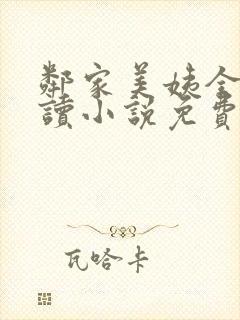 鄰家美姨全
讀小說免費
瓦哈卡